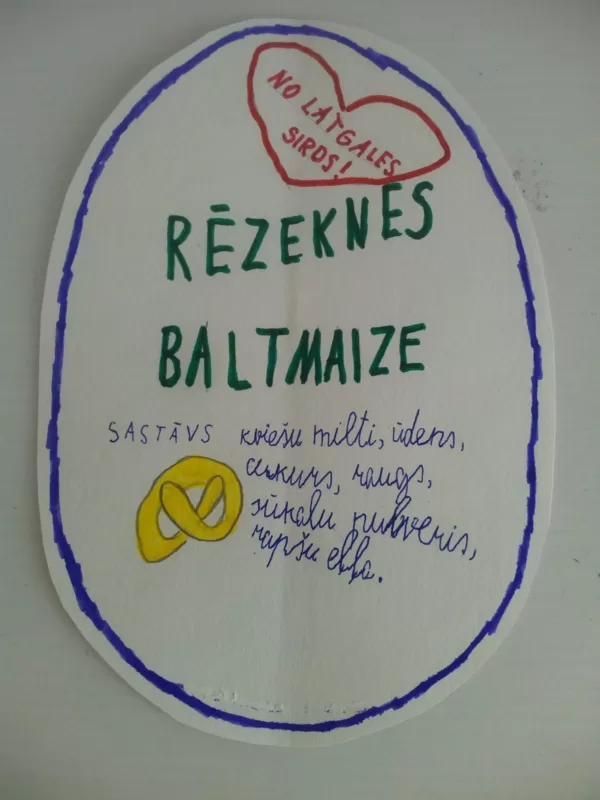 NO LATGALES
SIRDS!
RĒZEKNES
BALTMAIZE
SASTĀVS kviešu milti, ūdens,
cukurs, raugs,
sūkalu pulveris,
rapšu eļļa.